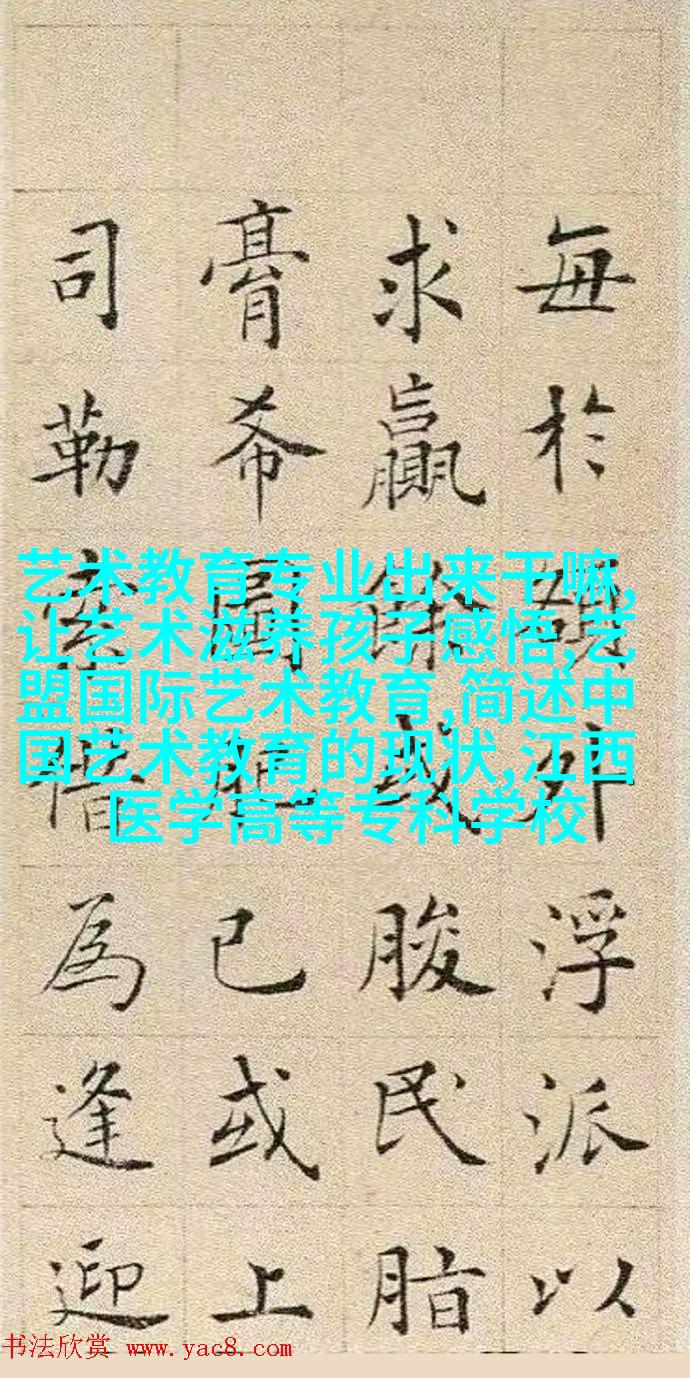 每於額外浮派以
求贏餘或朘民脂
膏希圖肥己或上
司勒索借為逢迎
艺术教育专业出来干嘛,
让艺术滋养孩子感悟,艺
盟国际艺术教育,简述中
国艺术教育的现状,江西
医学高等专科学校
书法欣赏 www.yac8.com